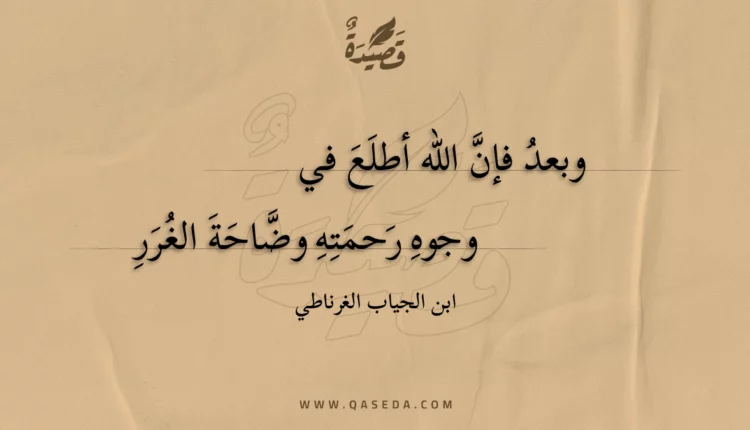 قَصِيدَةٌ
وبعدُ فإنَّ الله أطلَعَ في
وجوهِ رَحمَتِهِ وضَّاحَةَ الغُرَرِ
ابن الجياب الغرناطي
WWW.QASEDA.COM